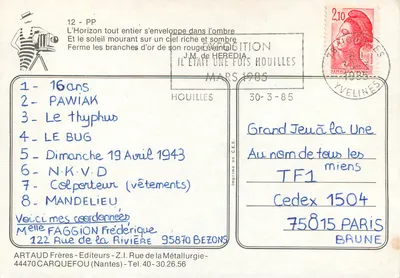 12 - PP
L'Horizon tout entier s'enveloppe dans l'ombre
Et le soleil mourant sur un ciel riche et sombre
Ferme les branches d'or de son rouge éventail
J.M. de HEREDIA
EXPOSITION
IL ÉTAIT UNE FOIS HOUILLES
MARS 1985
HOUILLES
30-3-85
2,10
1985
YVELINES
1- 16 ans
2- PAWIAK
3- Le thyphus
4- LE BUG
5- Dimanche 19 Avril 1943
6- N·K·V·D
7- Colporteur (vêtements)
8- MANDELIEU
Voici mes coordonnées
Melle FAGGION Frédérique
122 Rue de la RIVIÈRE 95870 BEZONS
Imprimé en C.E.E.
Grand Jeu à la Une
Au nom de tous les
miens
TF1
Cedex 1504
75815 PARIS
BRUNE
ARTAUD Frères - Editeurs - Z.I. Rue de la Métallurgie-
44470 CARQUEFOU (Nantes) - Tel. 40-30.26.56